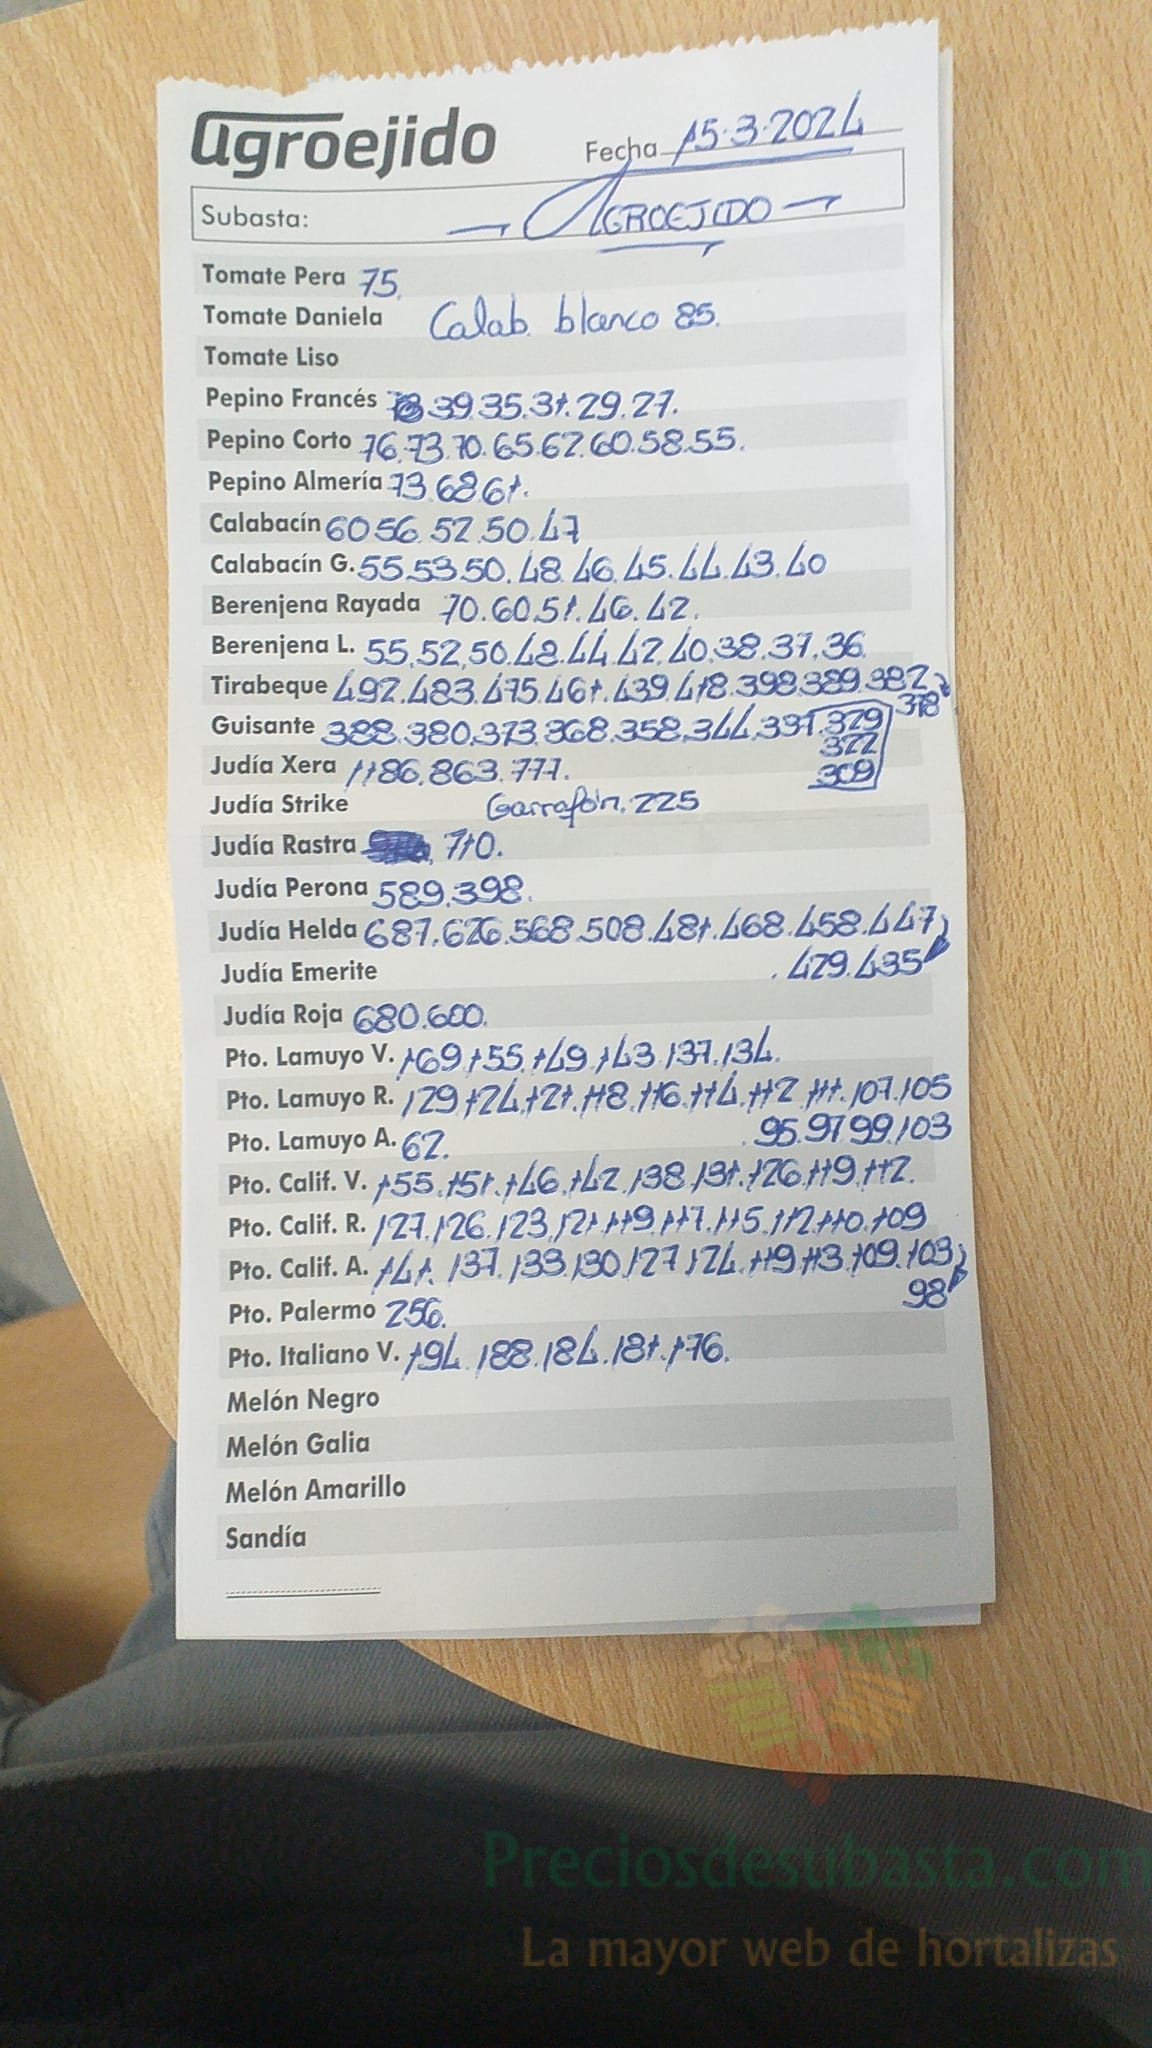 agroejido Fecha 15.3.2024
Subasta: AGROEJIDO
Tomate Pera 75.
Tomate Daniela Calab. blanco 85.
Tomate Liso
Pepino Francés 39.35.31.29.27.
Pepino Corto 76.73.70.65.62.60.58.55.
Pepino Almería 73.68.61.
Calabacín 60.56.52.50.47
Calabacín G. 55.53.50.48.46.45.44.43.40
Berenjena Rayada 70.60.51.46.42.
Berenjena L. 55.52.50.48.44.42.40.38.37.36.
Tirabeque 492.483.475.461.439.418.398.389.382
378
Guisante 388.380.373.368.358.344.331.329
322
309
Judía Xera 1186.863.777.
Judía Strike Garrafón.225
Judía Rastra 710.
Judía Perona 589.398.
Judía Helda 687.626.568.508.481.468.458.447
.429.435
Judía Emerite
Judía Roja 680.600.
Pto. Lamuyo V. 169.155.149.143.137.134.
Pto. Lamuyo R. 129.124.121.118.116.114.112.111.107.105
.95.97.99.103
Pto. Lamuyo A. 62.
Pto. Calif. V. 155.151.146.142.138.131.126.119.112.
Pto. Calif. R. 127.126.123.121.119.117.115.112.110.109
Pto. Calif. A. 141.137.133.130.127.124.119.113.109.103
98
Pto. Palermo 256.
Pto. Italiano V. 194.188.184.181.176.
Melón Negro
Melón Galia
Melón Amarillo
Sandía
Preciosdesubasta.com
La mayor web de hortalizas